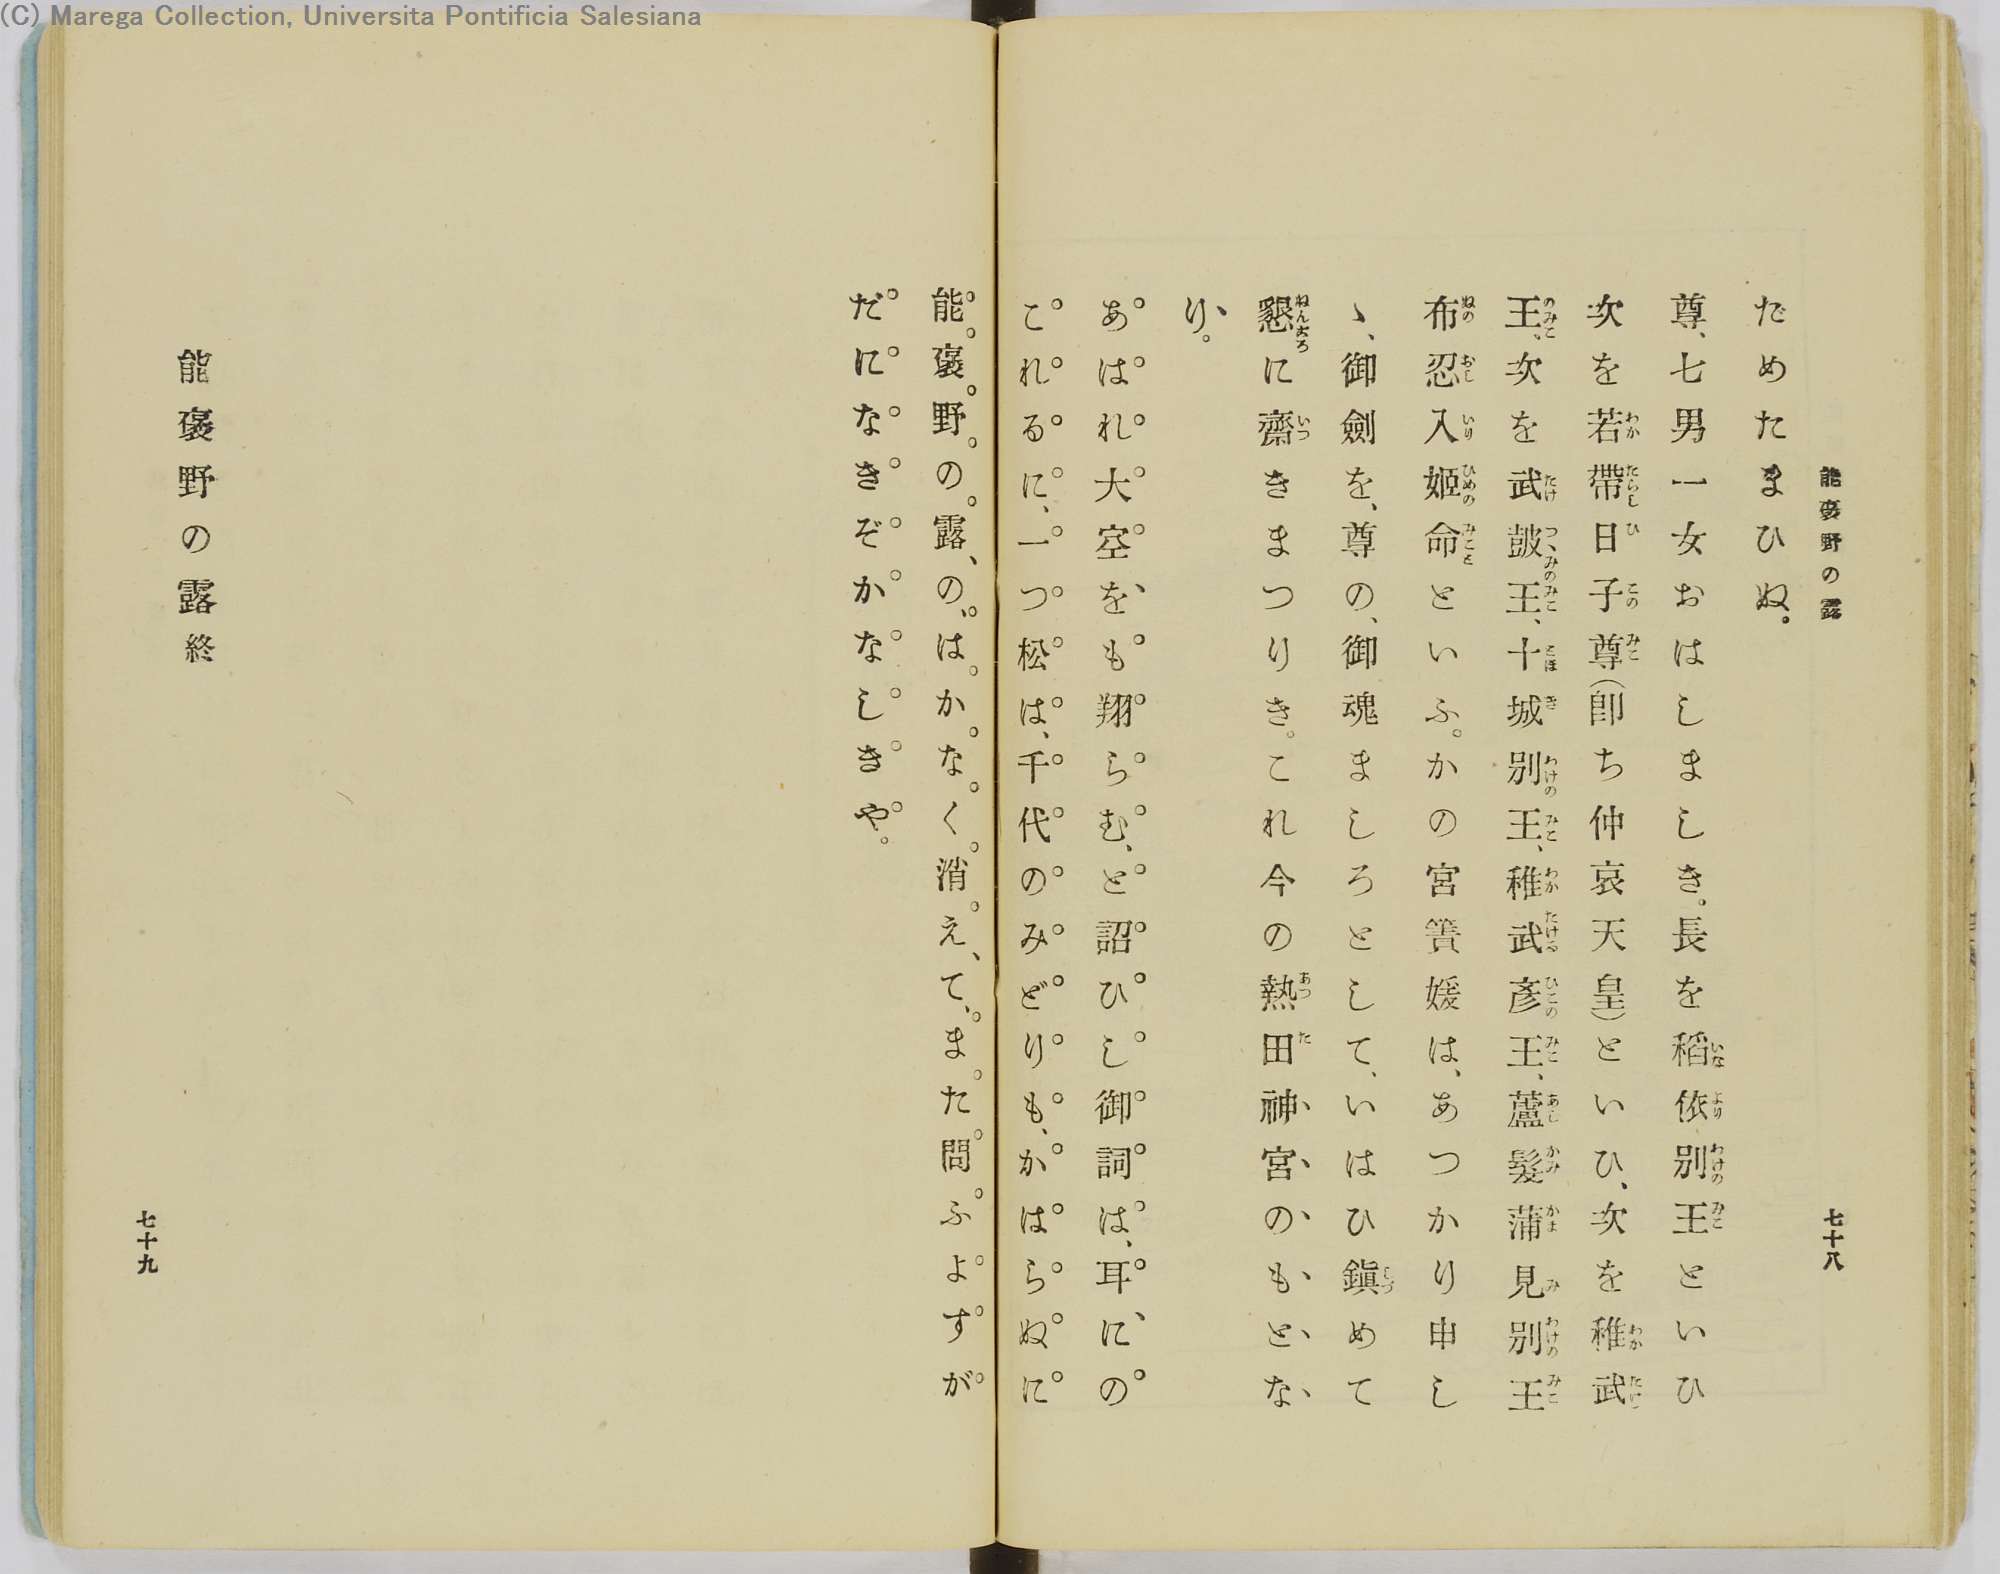 (C) Marega Collection, Universita Pontificia Salesiana
能褒野の露
だめたまひぬ。
尊、七男一女おはしましき。長を稻依別王といひ
次を若帶日子尊(卽ち仲哀天皇)といひ、次を稚武
王、次を武皷王、十城別王、稚武彥王、蘆髮蒲見別王
布忍入姬命といふ。かの宮簀媛は、あつかり申し
ゝ、御劍を、尊の、御魂ましろとして、いはひ鎭めて
懇に齋きまつりき。これ今の熱田神宮のもとな
り。
あはれ大空をも翔らむ、と詔ひし御詞は、耳にの
これるに、一つ松は、千代のみどりも、かはらぬに
七十八
能褒野の露、の、はかなく消え、て、また問ふよすが
だになきぞかなしきや。
能褒野の露終
七十九